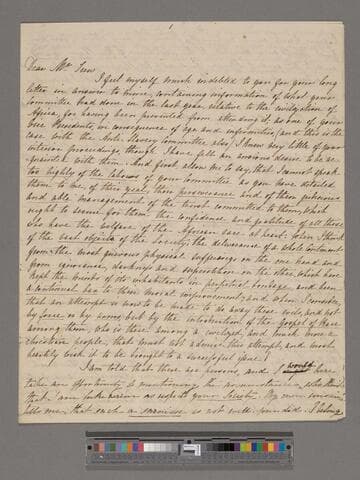 1
Dear Mr Trew
I feel myself much indebted to you for your long
letter in answer to mine, containing information of what your
committee had done in the last year, relative to the civilization of
Africa, for having been prevented from attending it, as one of your
Vice Presidents, in consequence of age and infirmities, and this is the
case with the Anti-Slavery Committee also, I knew very little of your
interior proceedings, though I have felt an anxious desire to be ac-
quainted with them. And first allow me to say, that I cannot speak
too highly of the labours of your Committee as you have detailed
them to me of their zeal, their perseverance and of their judicious
and able management of the trust committed to them, which
ought to secure for them the confidence and gratitude of all those
who have the welfare of the African race at heart. When I think
of the vast objects of the Society; the deliverance of a whole Continent
from the most grievous physical sufferings on the one hand and
from ignorance, darkness and superstition on the other, which have
kept the minds of its inhabitants in perpetual bondage and been
a continual bar to their moral improvement; and when I consider,
that an attempt is now to be made to do away these evils, and not
by force or by arms, but by the introduction of the Gospel of Peace
among them, who is there among a civilized, and much more a
christian people, that must not admire this attempt, and most
heartily wish it to be brought to a successful issue!
I am told that there are persons, and I would here
take an opportunity of mentioning the circumstance, who think
that I am lukewarm as respects your Society. My own conscience
tells me, that such a surmise is not well founded. I belong